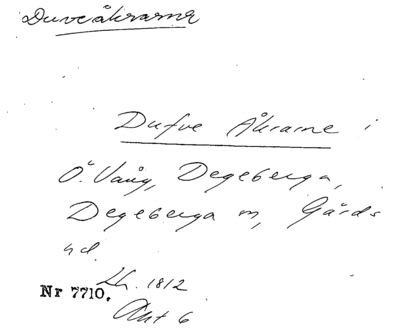 Duveåkrarna
Dufve Åkrarne i
Ö. Vång, Degeberga,
Degeberga sn, Gärds
hd.
Lh. 1812
Nr 7710.
Akt 6